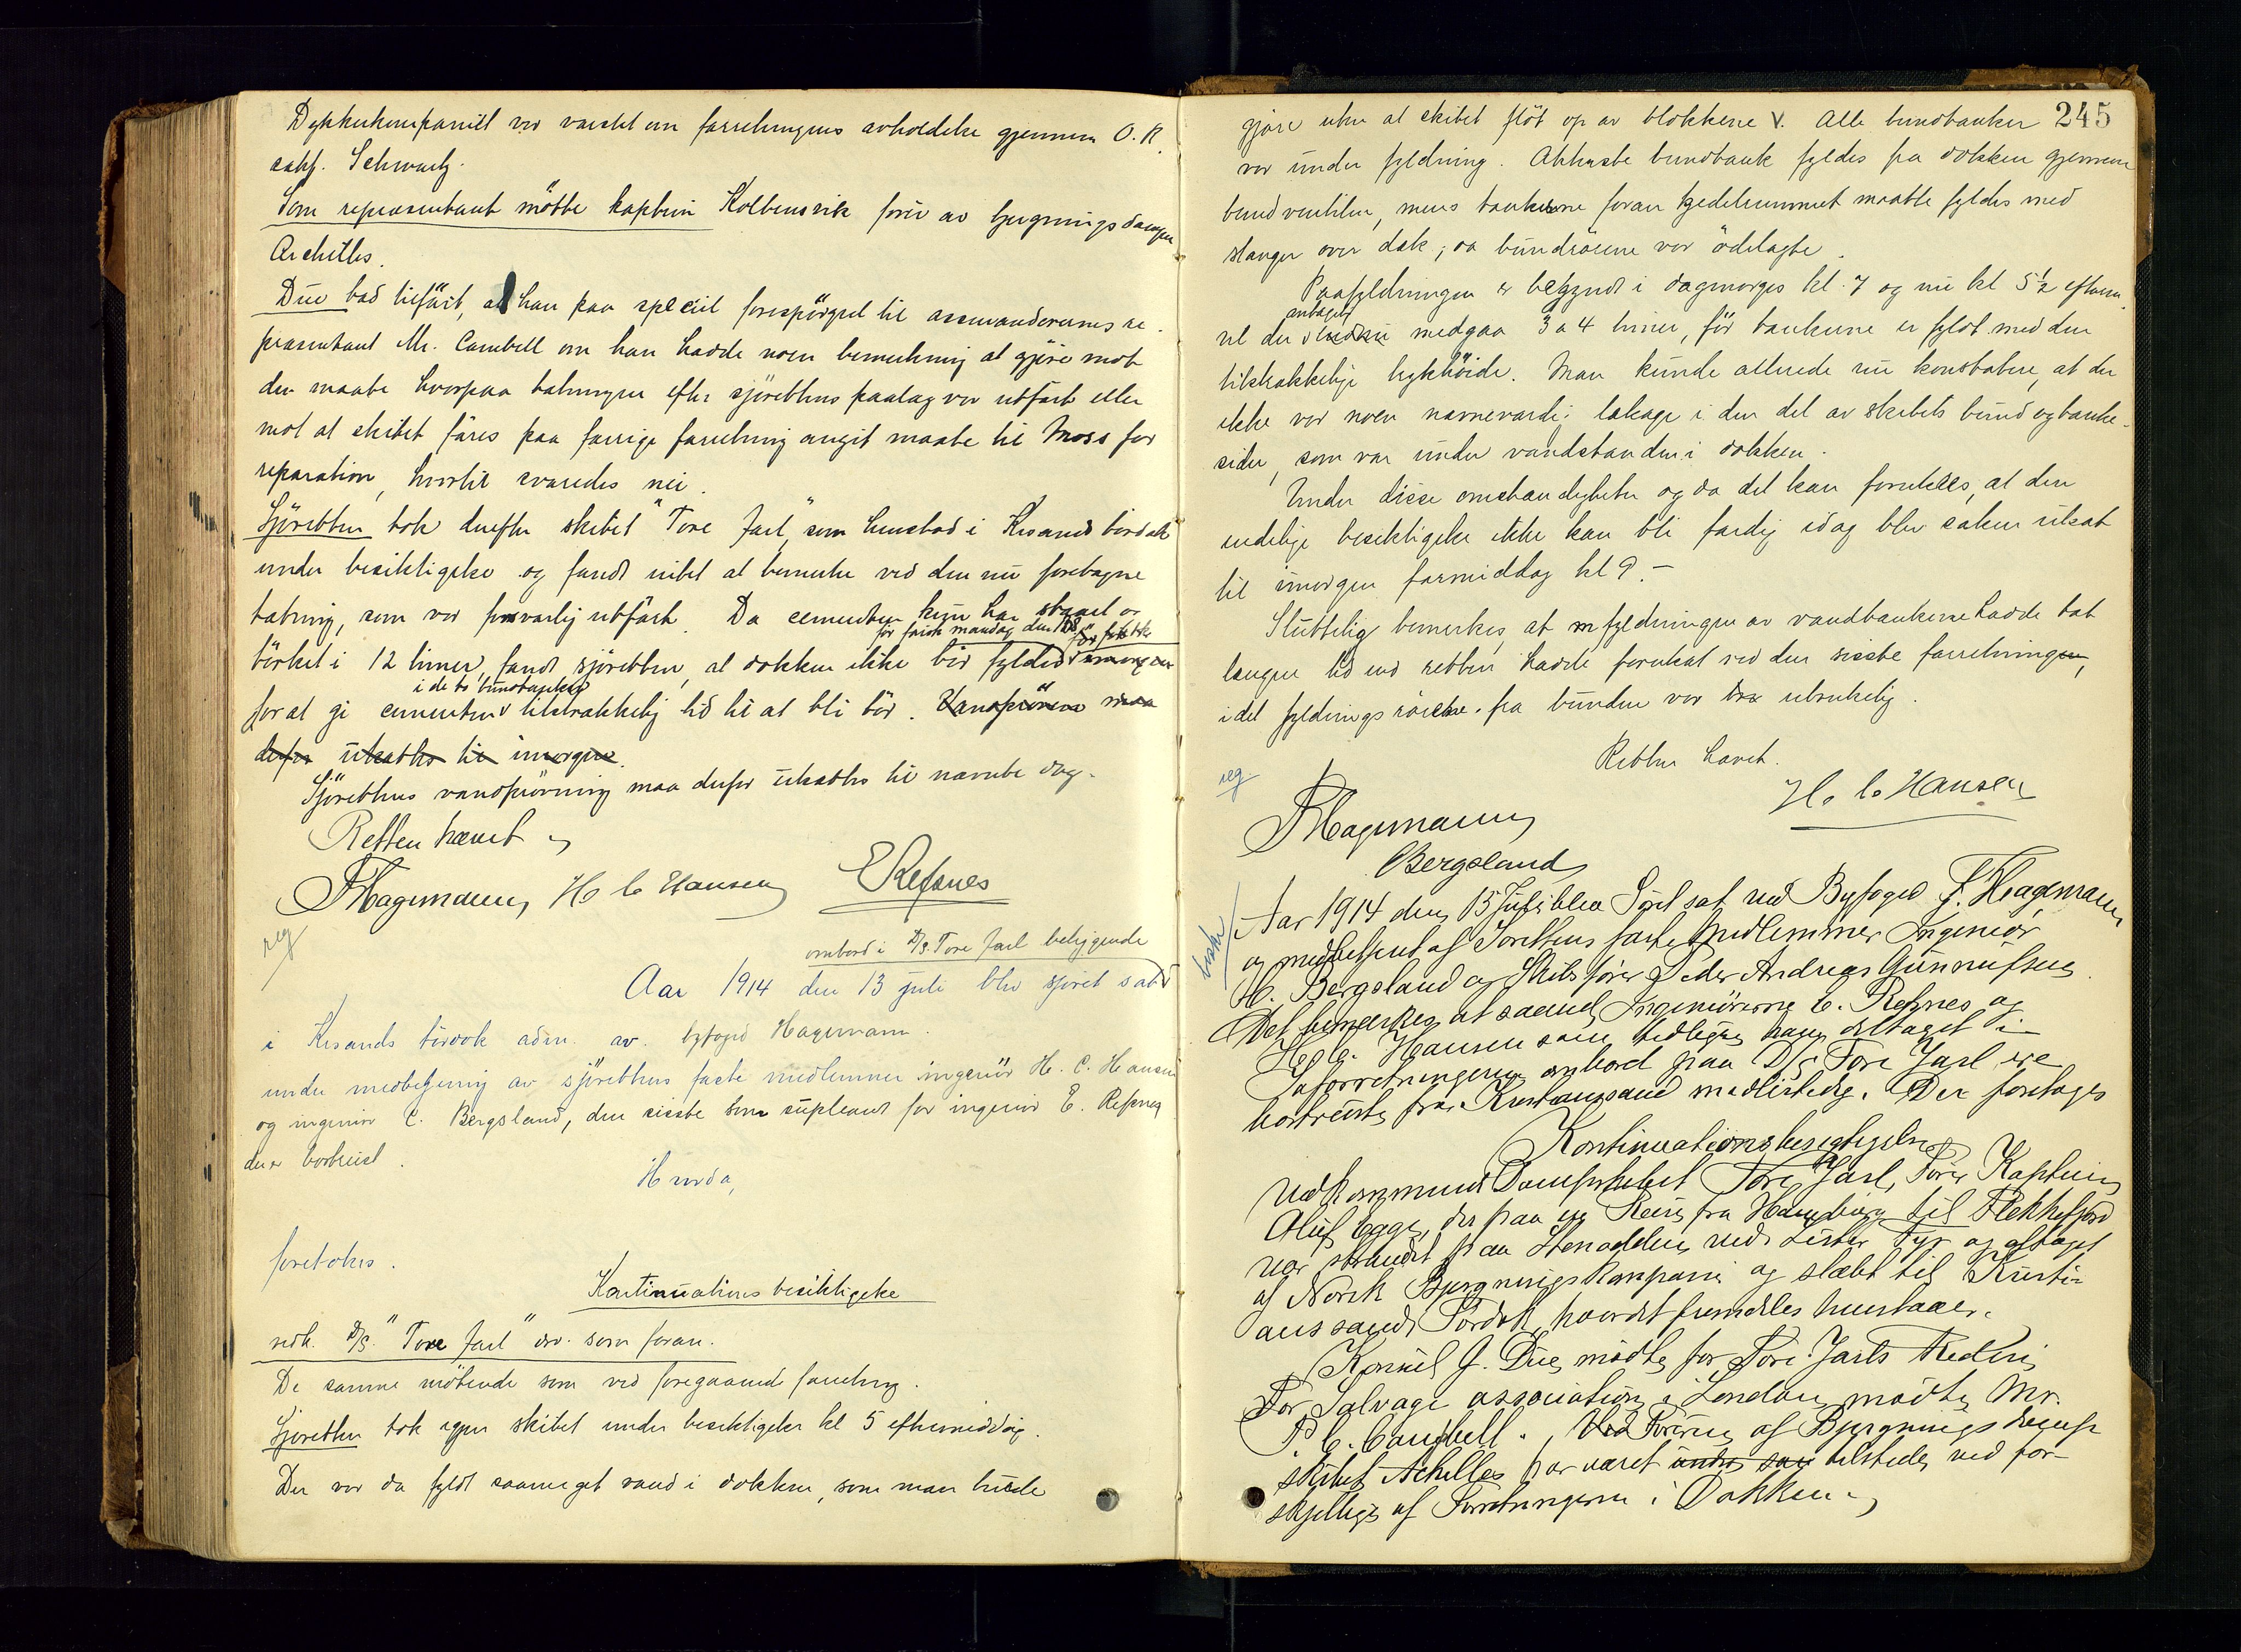 Dykkerkompaniet var varslet om forretningens avholdelse gjennem O.R.
sakf. Schwartz.
Som repræsentant mötte kaptein Kolbensvik förer av bjergningsdamper
Archilles.
Due bad tilfört, at han paa speciel forespörgsel til assurandörernes re-
præsentant Mr. Cambell om han hadde noen bemerkning at gjöre mot
den maate hvorpaa tætningen efter sjörettens paalæg var utfört eller
mot at skibet föres paa forrige forretning angit maate til Moss for
reparation, hvortil svaredes nei.
Sjöretten tok derefter skibet "Tore Jarl", som henstod i Krsands tördok
under besiktigelse og fandt intet at bemerke ved den nu foretagne
tætning, som var forsvarlig utfört. Da cementen kun har staaet og
för först mandag den 13. för fk tk
törket i 12 timer, fandt sjöretten, at dokken ikke bör fyldes imorgen
i de to bundtanker
for at gi cementen v tilstrækkelig tid til at bli tör. Vandprövene maa
derfor utsættes til imorgen.
Sjörettens vandprövning maa derfor utsættes til nævnte dag.
Retten hævet
F Hagemann H C Hansen E Refsnes
reg
ombord i D/S. Tore Jarl beliggende
Aar 1914 den 13 juli blev sjöret sat v
i Krsands tördok adm. av byfoged Hagemann
under medbetjening av sjörettens faste medlemmer ingeniör H. C. Hansen
og ingeniör C. Bergsland, den sidste som supleant for ingeniör E. Refsnes
der er bortreist.
Hvorda,
foretokes.
Kontinuations besiktigelse
vedk. D/S. "Tore Jarl" osv. som foran.
De samme mötende som ved foregaaende forretning.
Sjöretten tok igjen skibet under besiktigelse kl 5 eftermiddag.
Der var da fyldt saameget vand i dokken, som man turde
245
gjöre uten at skibet flöt op av blokkene v. Alle bundtanker
var under fyldning. Akterste bundtank fyldes fra dokken gjennem
bundventilen, mens tankerne foran kjedelrummet maatte fyldes med
slanger over dæk, da bundrörene var ödelagte.
Paafyldningen er begyndt i dagmorges kl. 7 og nu kl 5 1/2 efterm.
antagelig
vil der v endnu medgaa 3 a 4 timer, för tankerne er fyldt med den
tilstrækkelige trykhöide. Man kunde allerede nu konstatere, at der
ikke var noen nævneværdig lækage i den del av skibets bund og tanke-
sider, som var under vandstanden i dokken.
Under disse omstændigheter og da det kan forutsees, at den
endelige besiktigelse ikke kan bli færdig idag blev saken utsat
til imorgen formiddag kl 9.-
Sluttelig bemerkes, at fyldningen av vandtankerne hadde tat
længere tid end retten hadde forutsat ved den sidste forretningen,
idet fyldningsrörene fra bunden var ubrukelig.
Retten hævet.
reg
H. C. Hansen
F Hagemann
Bergsland
Aar 1914 den 15 Juli blev Söret sat ved Byfoged F. Hagemann
og medbetjent af Sörettens faste Medlemmer Ingeniör
H. Bergsland og Skibsförer Peder Andreas Gunnufsen.
Det bemærkes at saavel Ingeniörerne E. Refsnes og
H. C. Hansen som tidligere have deltaget i
Söforretningerne ombord paa D/S Tore Jarl ere
bortreiste fra Kristianssand midlertidig. Der foretoges
Kontinuationsbesigtigelse
vedkommende Dampskibet Tore Jarl, Förer Kaptein
Oluf Egge, der paa en Reise fra Hamburg til Flekkefjord
var strandet paa Stenodden ved Lister Fyr og aftaget
af Norsk Bjergningskompani og slæbt til Kristi-
anssands Tördok, hvor det fremdeles henstaaer.
Konsul J. Due mödte for Tore Jarls Rederi
For Salvage association i London mödte Mr.
P. C. Campbell. Ved Föreren af Bjergningsdamp-
skibet Achilles har været under sin tilstede ved for-
skjellige af Forretningerne i Dokken.